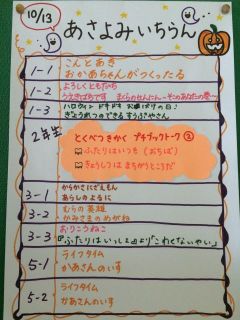 10/13
あさよみいちらん
1-1
こんとあき
おかあちゃんがつくったる
1-2
よろしくともだち
うえきばちです まくらのせんにん-そのあなたの巻-
1-3
ハロウィンドキドキおばけの日!
きょうふの
2年生
とくべつきかく プチブックトーク②
ふたりはいつも(おちば)
きょうしつはまちがうところだ
3-1
からかさにざえもん
あらしのように
3-2
むらの英雄
かみさまのめがね
3-3
おりこうねこ
『ふたりはいっしょ』より「こわくないやい」
5-1
ライフタイム
かあさんのいす
5-2
ライフタイム
かあさんのいす